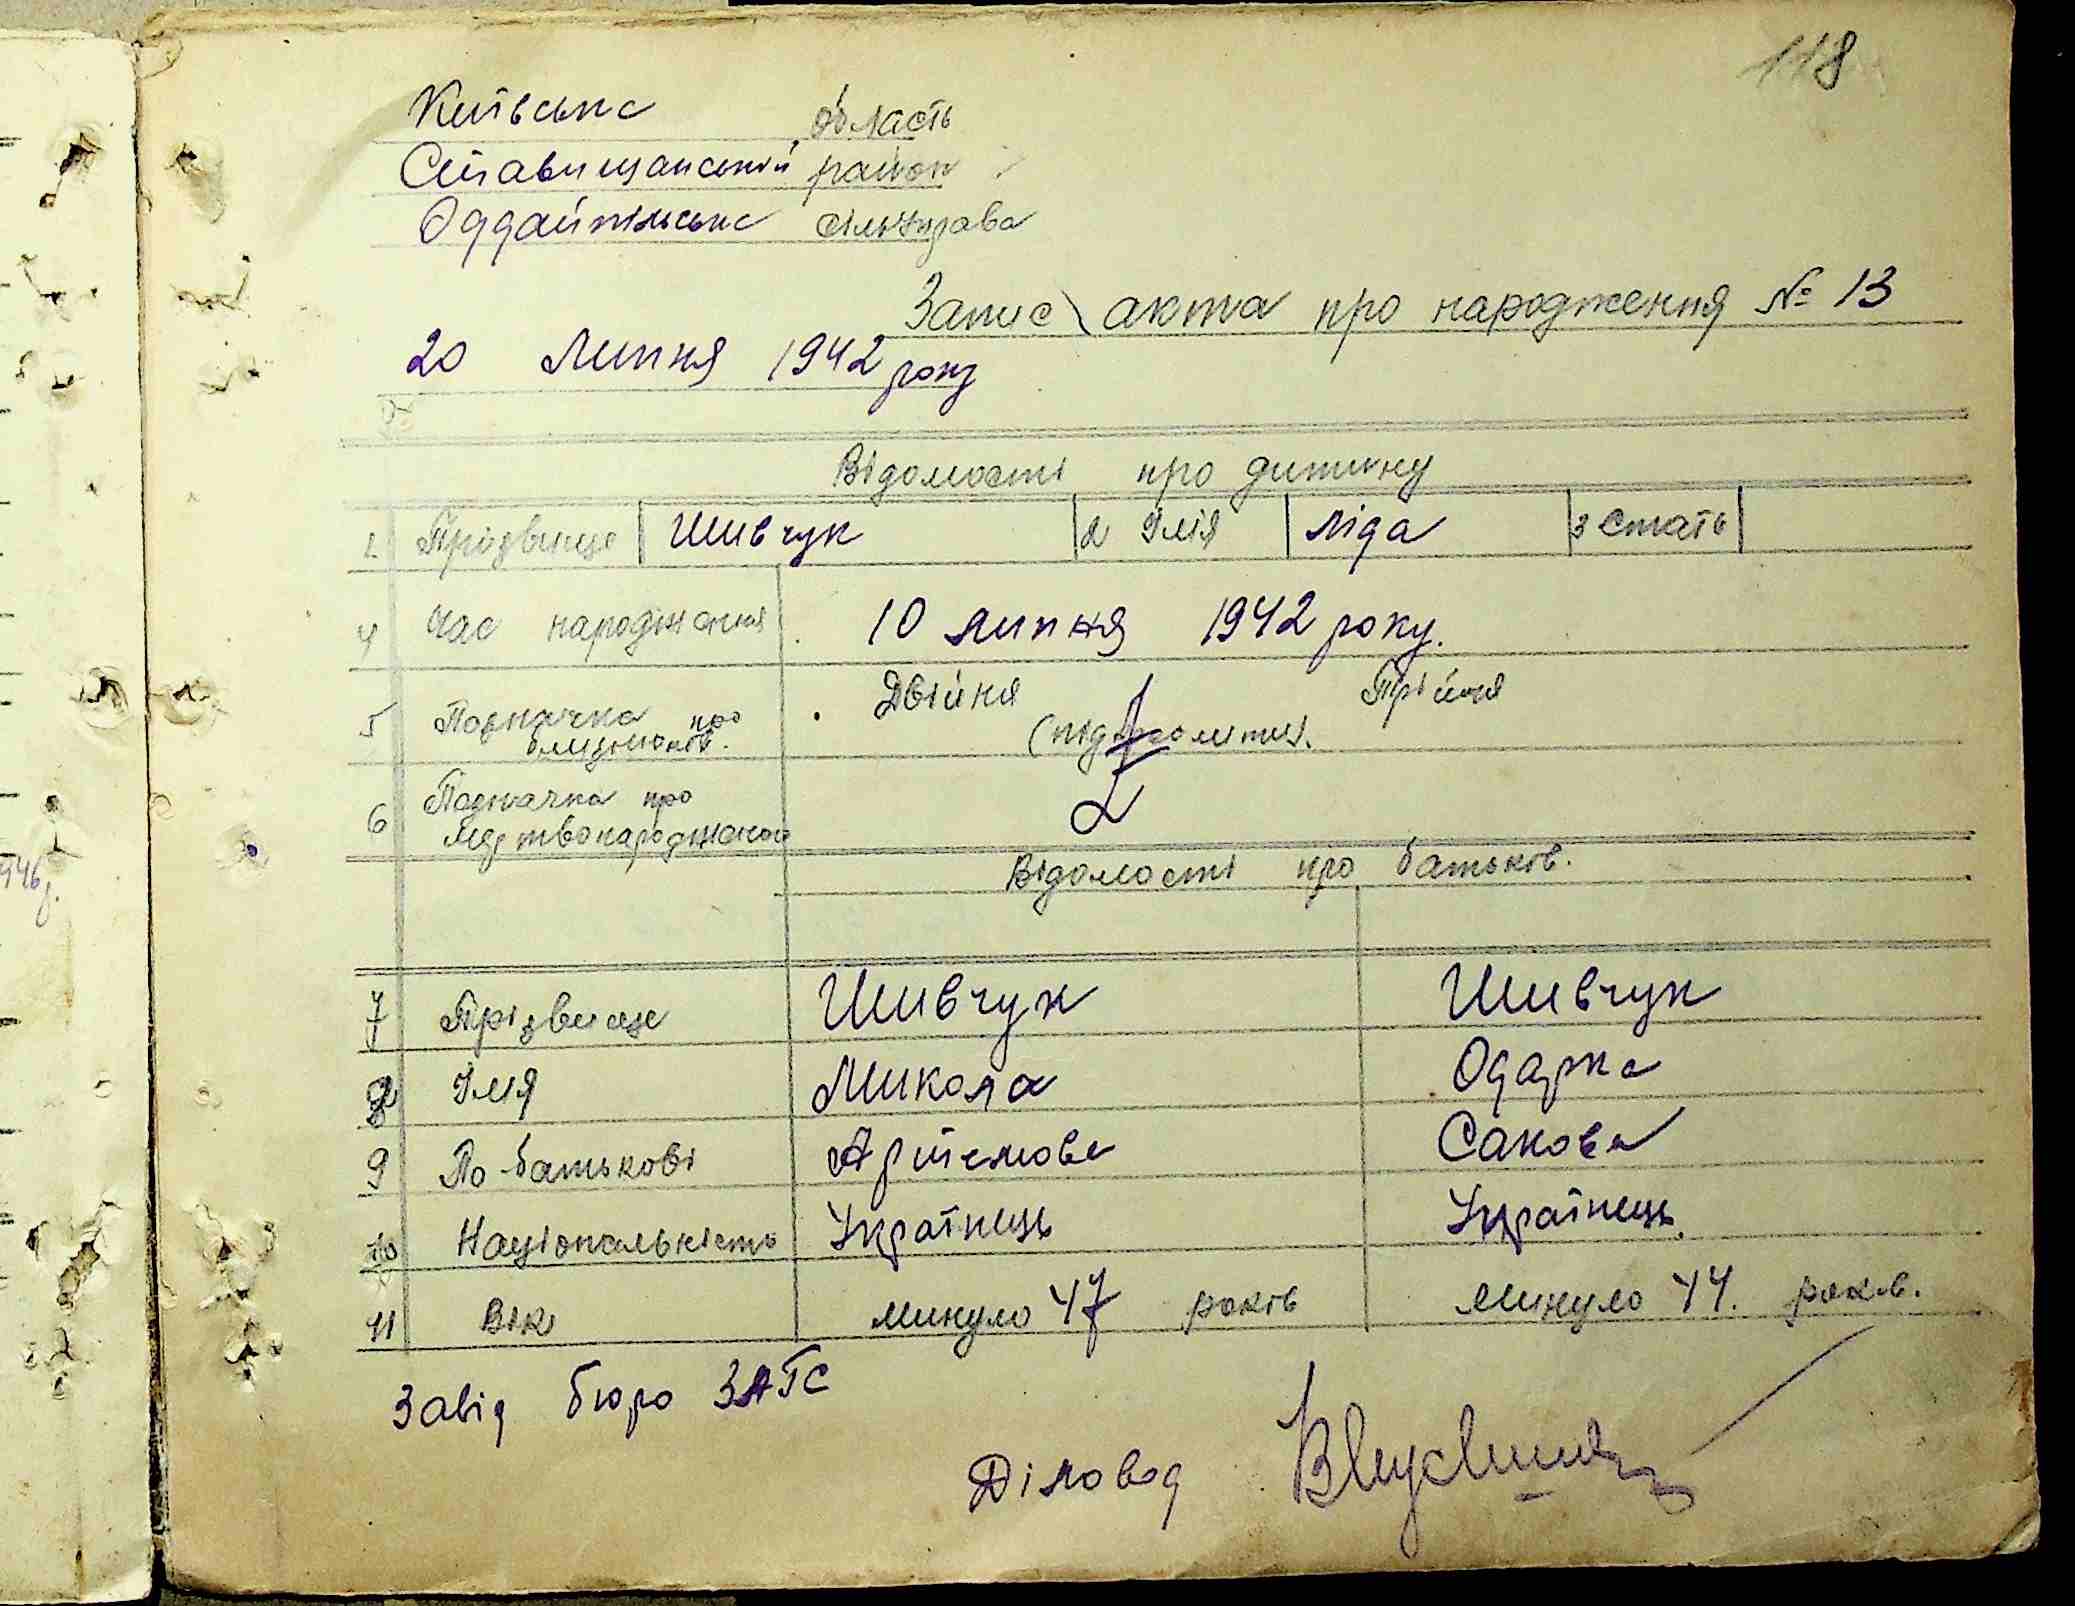 118
Київська область
Ставищанський район
Оддайпільська сільуправа
Запис акта про народження № 13
20 Липня 1942 року
Відомості про дитину
1 Прізвище Шивчук 2 Імія Ліда 3 Стать
4 Час народження 10 липня 1942 року.
5 Позначка про близнюків. Двійня (підкреслити). Трійня
6 Позначка про мертвонароджен
Відомості про батьків.
7 Прізвище Шивчук Шивчук
8 Імя Микола Одарка
9 По-батькові Артемова Сакова
10 Національність Українець Українець.
11 Вік минуло 47 років минуло 44. років.
Завід бюро ЗАГС
Діловод
946р.